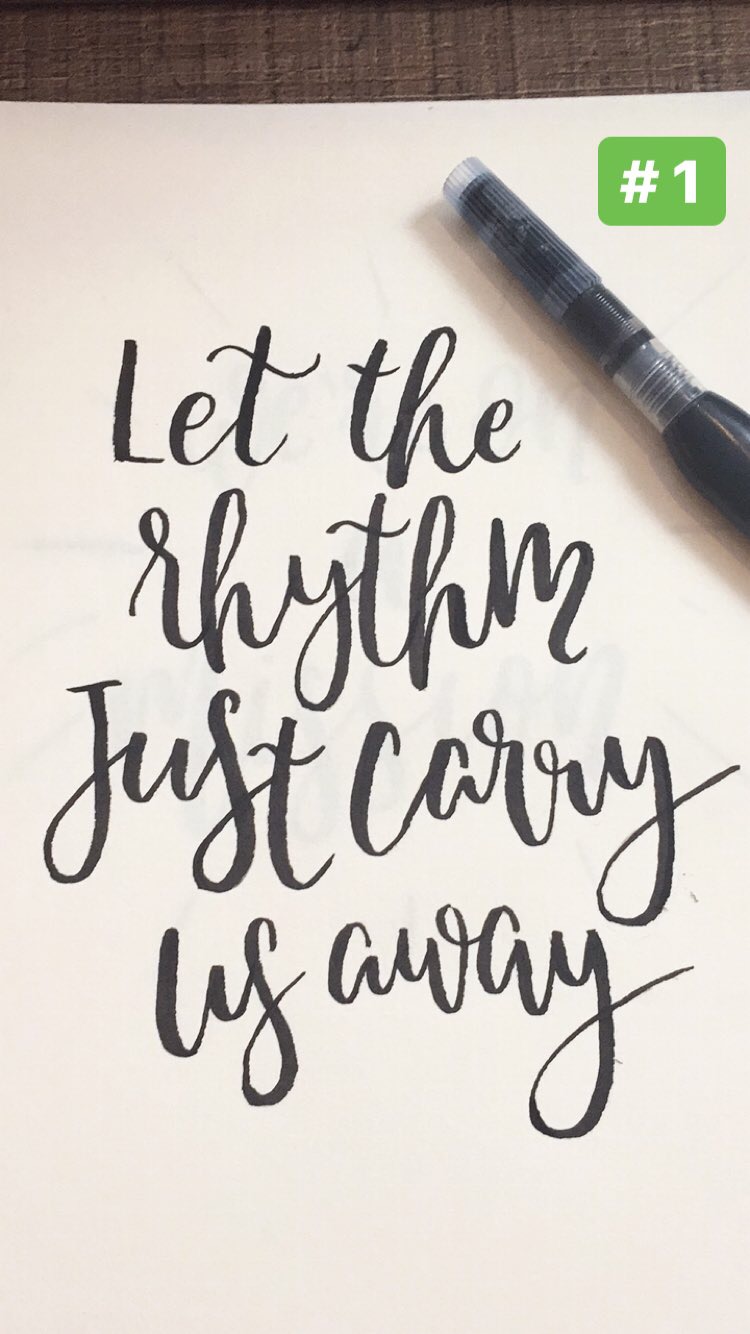 #1
Let the
rhythm
Just carry
us away